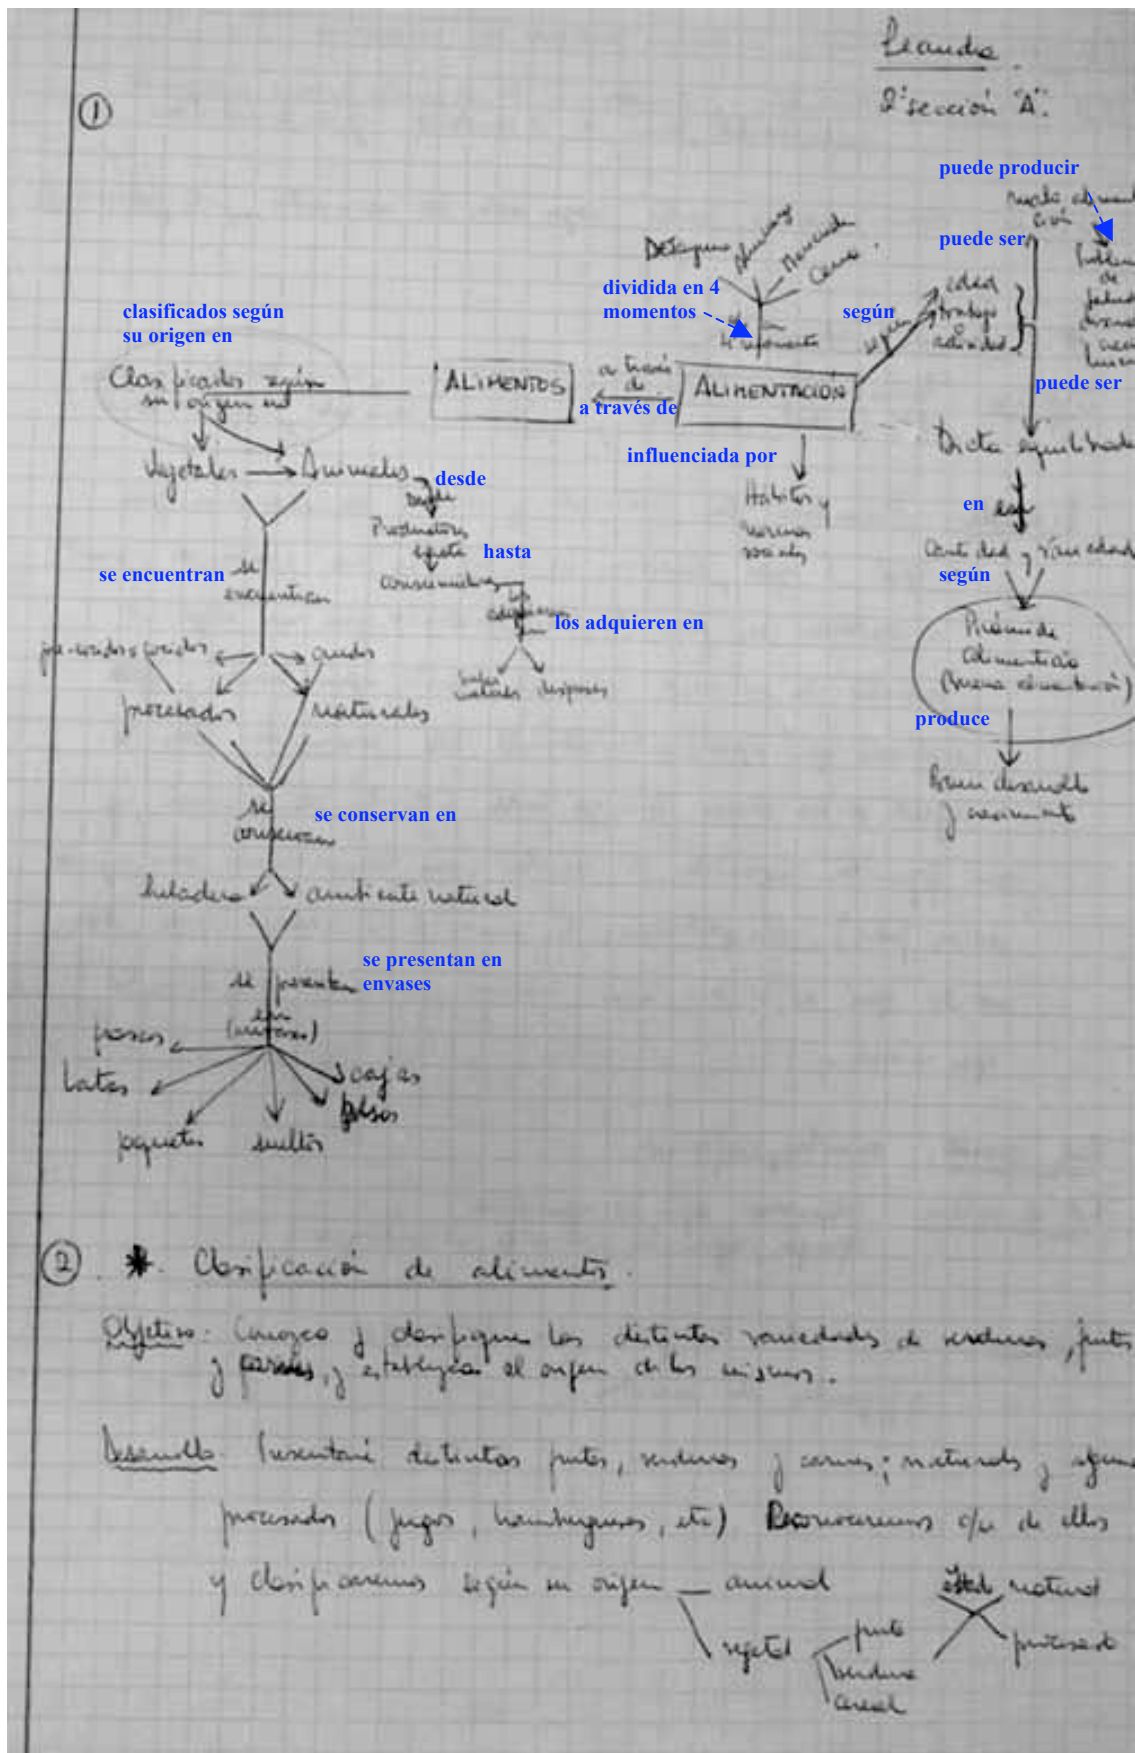 Leandra
2° sección "A".
①
puede producir
mala alimenta
ción
puede ser
Problemas
de
salud
Desayuno
Almuerzo
Merienda
Cena
dividida en 4
momentos
4 momentos
según
según
edad
trabajo
o
actividad
clasificados según
su origen en
Clasificados según
su origen en
ALIMENTOS
a través
de
a través de
ALIMENTACIÓN
puede ser
Dieta equilibrada
influenciada por
Hábitos y
normas
sociales
en
en
Cantidad y variedad
según
Pirámide
alimenticia
(Buena alimentación)
produce
Buen desarrollo
y crecimiento
Vegetales
Animales
desde
Desde
Productores
hasta
hasta
consumidores
los
adquieren
en
los adquieren en
se encuentran
se
encuentran
pre-cocidos o cocidos
crudos
procesados
naturales
se
conservan
se conservan en
heladera
ambiente natural
se presentan
en
(envases)
se presentan en
envases
frascos
latas
paquetes
sueltos
cajas
bolsas
② * Clasificación de alimentos.
Objetivo: Conozca y clasifique las distintas variedades de verduras, frutas
y carnes, y establezca el origen de los mismos.
Desarrollo: Presentaré distintas frutas, verduras y carnes; naturales y algunos
procesados (jugos, hamburguesas, etc) Reconoceremos c/u de ellos
y clasificaremos según su origen — animal
vegetal
fruta
verdura
cereal
estado natural
procesado